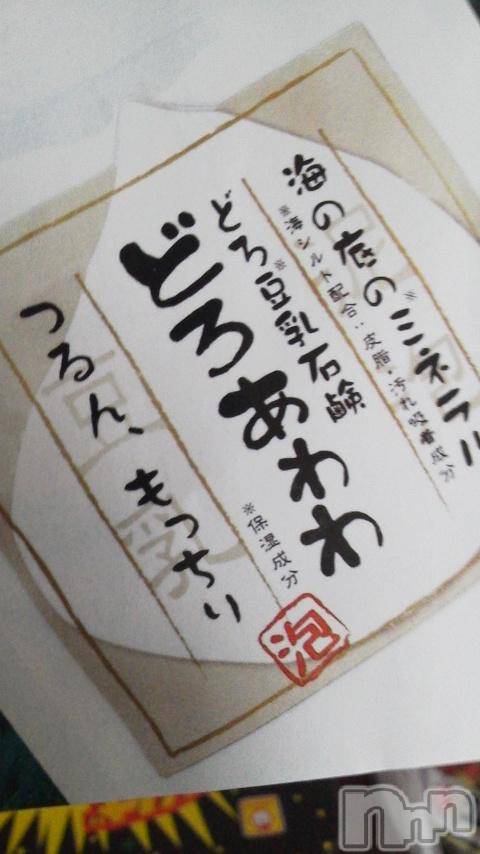 海の底のミネラル※
※海シルト配合:皮脂・汚れ吸着成分
どろ豆乳石鹸※
どろあわわ
※保湿成分
つるん、もっちり
豆乳
泡
nnn